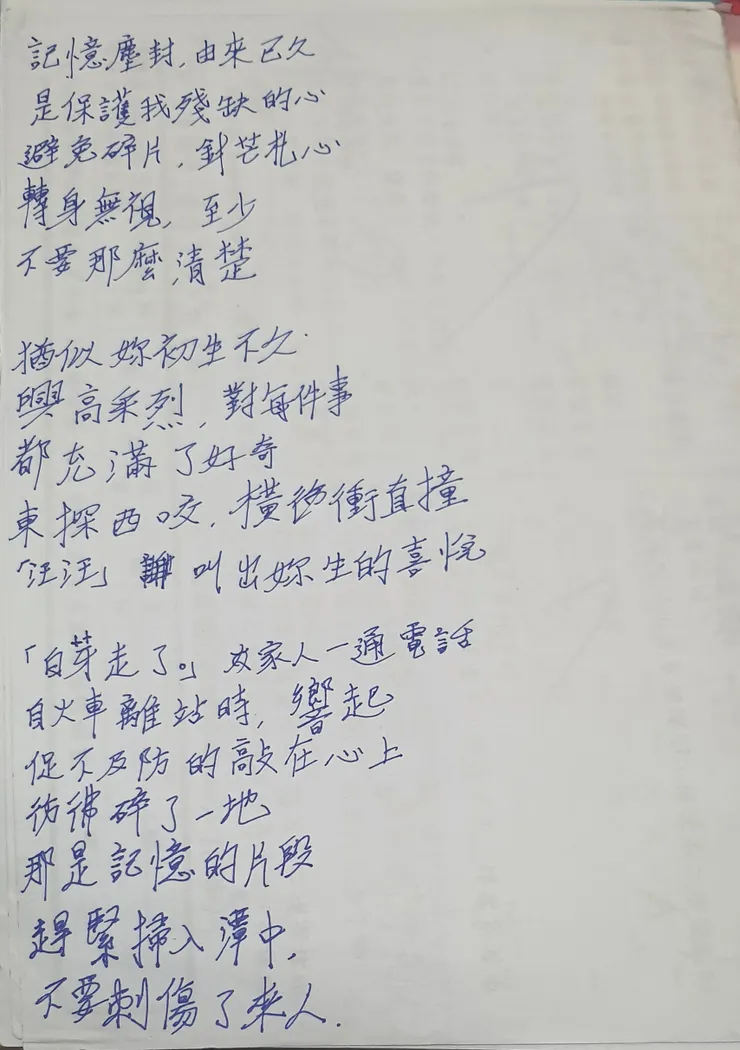 記憶塵封,由來已久
是保護我殘缺的心
避免碎片,針芒扎心
轉身無視,至少
不要那麼清楚
猶似妳初生不久
興高采烈,對每件事
都充滿了好奇
東探西咬,橫衝直撞
「汪汪」叫出妳生的喜悅
「白芽走了。」家人一通電話
自火車離站時,響起
促不及防的敲在心上
彷彿碎了一地
那是記憶的片段
趕緊掃入潭中,
不要刺傷了來人.